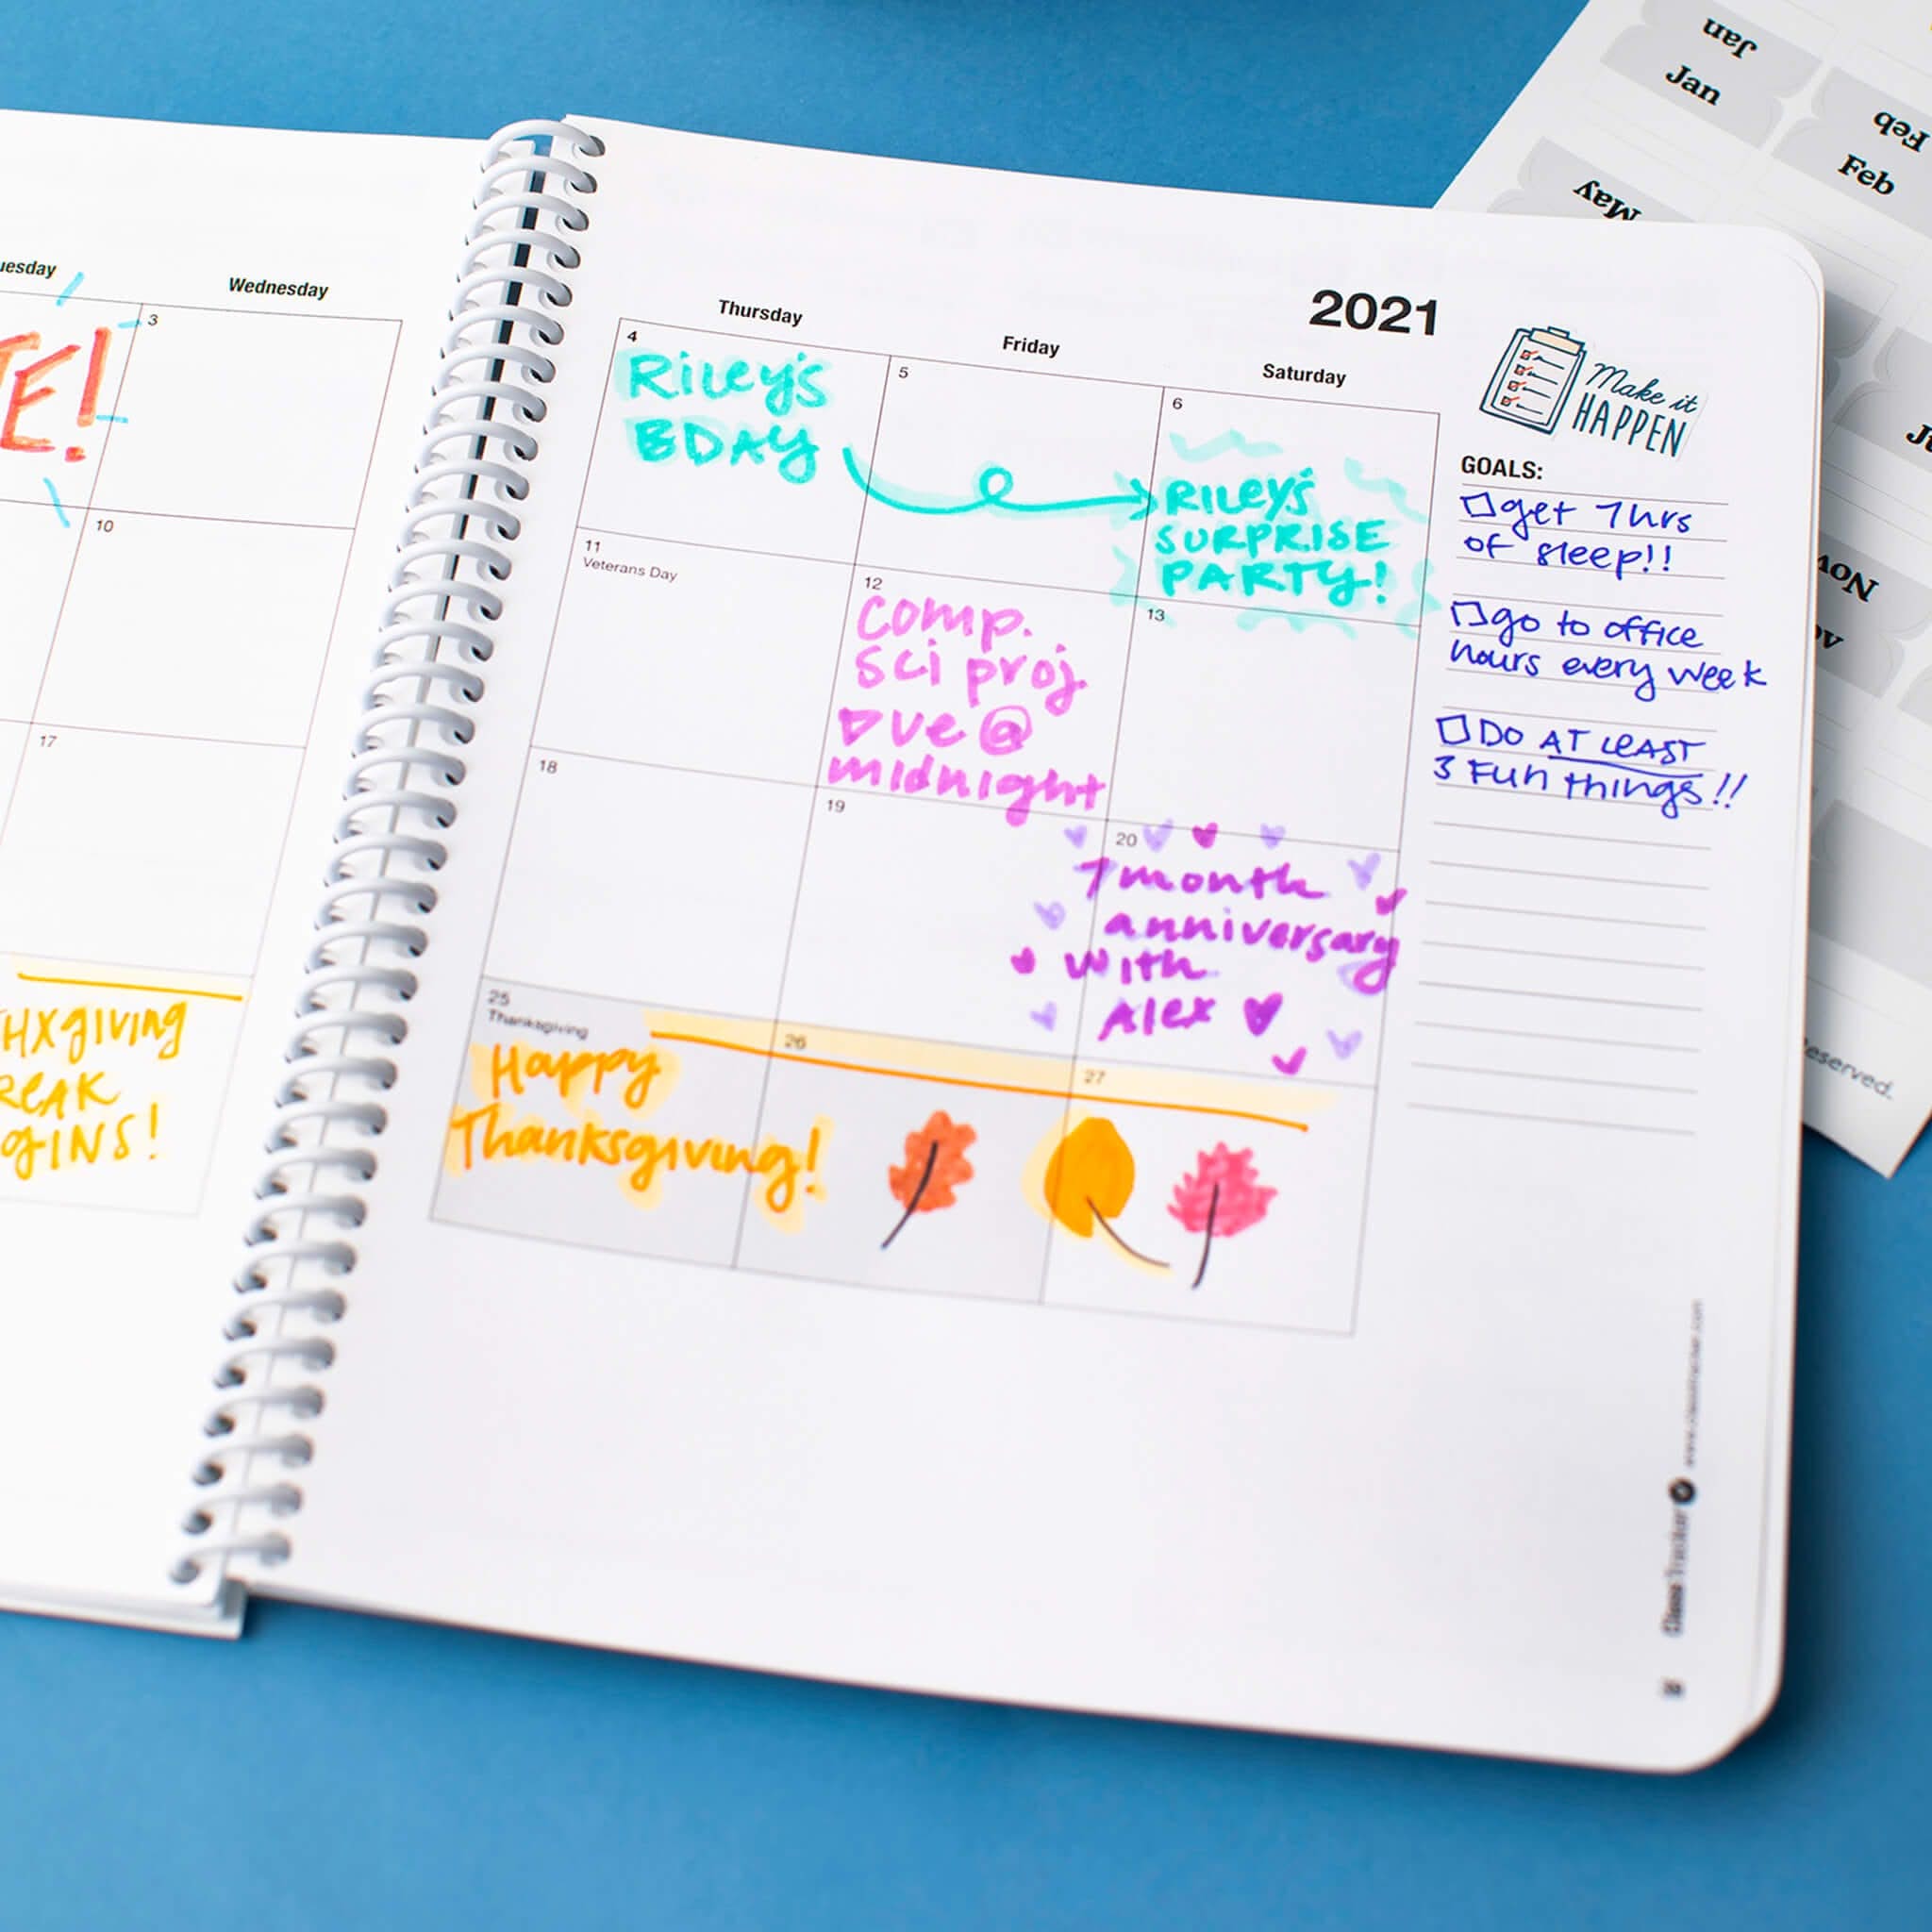 Jan
Jan
Feb
Feb
May
2021
Wednesday
Thursday
Friday
Saturday
3
4
Riley's
BDAY
5
6
RILEY'S
SURPRISE
PARTY!
10
11
Veterans Day
12
comp.
sci proj
DUE @
midnight
13
17
18
19
20
7 month
anniversary
with
Alex
THXGIVING
BREAK
25
Thanksgiving
Happy
Thanksgiving!
26
27
Make it
HAPPEN
GOALS:
get 7 hrs
of sleep!!
go to office
hours every week
Do AT LEAST
3 Fun things!!
Nov
Class Tracker